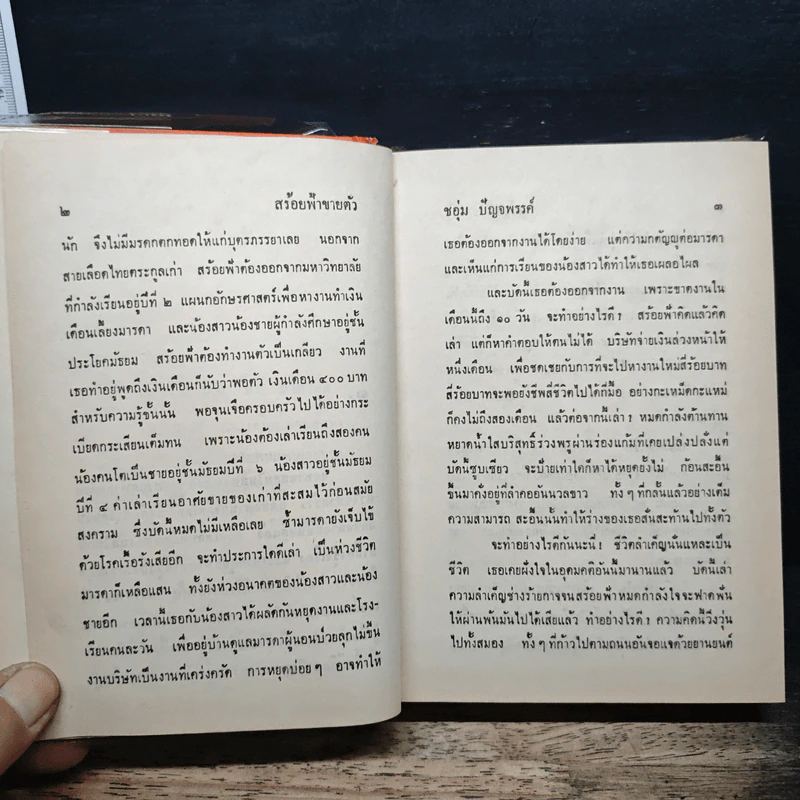 ๒ สร้อยฟ้าขายตัว
นัก จึงไม่มีมรดกตกทอดให้แก่บุตรภรรยาเลย นอกจาก
สายเลือดไทยตระกูลเก่า สร้อยฟ้าต้องออกจากมหาวิทยาลัย
ที่กำลังเรียนอยู่ปีที่ ๒ แผนกอักษรศาสตร์เพื่อหางานทำเงิน
เดือนเลี้ยงมารดา และน้องสาวน้องชายผู้กำลังศึกษาอยู่ชั้น
ประโยคมัธยม สร้อยฟ้าต้องทำงานตัวเป็นเกลียว งานที่
เธอทำอยู่พูดถึงเงินเดือนก็นับว่าพอตัว เงินเดือน ๔๐๐ บาท
สำหรับความรู้ชั้นนั้น พอจุนเจือครอบครัวไปได้อย่างกระ
เบียดกระเสียนเต็มทน เพราะน้องต้องเล่าเรียนถึงสองคน
น้องคนโตเป็นชายอยู่ชั้นมัธยมปีที่ ๖ น้องสาวอยู่ชั้นมัธยม
ปีที่ ๔ ค่าเล่าเรียนอาศัยขายของเก่าที่สะสมไว้ก่อนสมัย
สงคราม ซึ่งบัดนี้หมดไม่มีเหลือเลย ซ้ำมารดายังเจ็บไข้
ด้วยโรคเรื้อรังเสียอีก จะทำประการใดดีเล่า เป็นห่วงชีวิต
มารดาก็เหลือแสน ทั้งยังห่วงอนาคตของน้องสาวและน้อง
ชายอีก เวลานี้เธอกับน้องสาวได้ผลัดกันหยุดงานและโรง-
เรียนคนละวัน เพื่ออยู่บ้านดูแลมารดาผู้นอนป่วยลุกไม่ขึ้น
งานบริษัทเป็นงานที่เคร่งครัด การหยุดบ่อยๆ อาจทำให้
ชอุ่ม ปัญจพรรค์ ๓
เธอต้องออกจากงานได้โดยง่าย แต่ความกตัญญูต่อมารดา
และเห็นแก่การเรียนของน้องสาวได้ทำให้เธอเผลอไผล
และบัดนี้เธอต้องออกจากงาน เพราะขาดงานใน
เดือนนี้ถึง ๑๐ วัน จะทำอย่างไรดี? สร้อยฟ้าคิดแล้วคิด
เล่า แต่ก็หาคำตอบให้ตนไม่ได้ บริษัทจ่ายเงินล่วงหน้าให้
หนึ่งเดือน เพื่อชดเชยกับการที่จะไปหางานใหม่สี่ร้อยบาท
สี่ร้อยบาทจะพอยังชีพสี่ชีวิตไปได้กี่มื้อ อย่างกะเหม็ดกะแหม่
ก็คงไม่ถึงสองเดือน แล้วต่อจากนี้เล่า? หมดกำลังต้านทาน
หยาดน้ำใสบริสุทธิ์ร่วงพรูผ่านร่องแก้มที่เคยเปล่งปลั่งแต่
บัดนี้ซูบเซียว จะป้ายเท่าใดก็หาได้หยุดยั้งไม่ ก้อนสะอื้น
ขึ้นมาคั่งอยู่ที่ลำคออันนวลขาว ทั้งๆ ที่กลั้นแล้วอย่างเต็ม
ความสามารถ สะอื้นนั้นทำให้ร่างของเธอสั่นสะท้านไปทั้งตัว
จะทำอย่างไรดีกันนะนี่? ชีวิตลำเค็ญนั่นแหละเป็น
ชีวิต เธอเคยฝังใจในอุดมคติอันนี้มานานแล้ว บัดนี้เล่า
ความลำเค็ญช่างร้ายกาจจนสร้อยฟ้าหมดกำลังใจจะฟาดฟัน
ให้ผ่านพ้นมันไปได้เสียแล้ว ทำอย่างไรดี? ความคิดนี้วิ่งวุ่น
ไปทั้งสมอง ทั้งๆ ที่ก้าวไปตามถนนอันจอแจด้วยยานยนต์